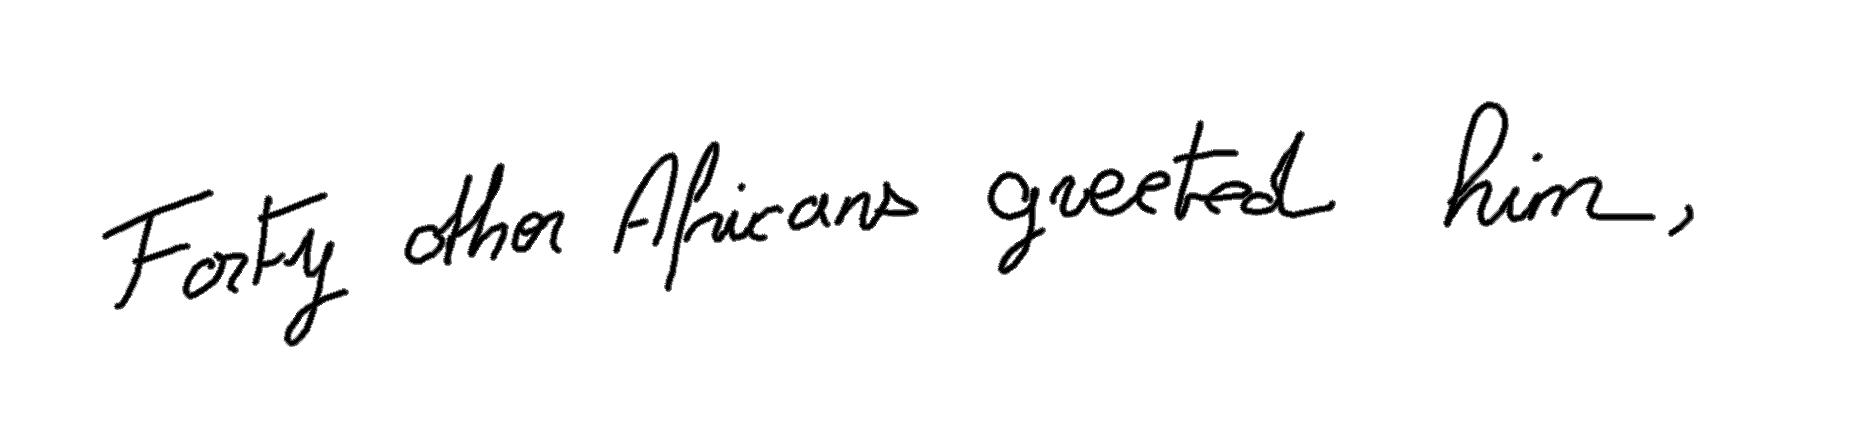 Forty other Africans greeted him,